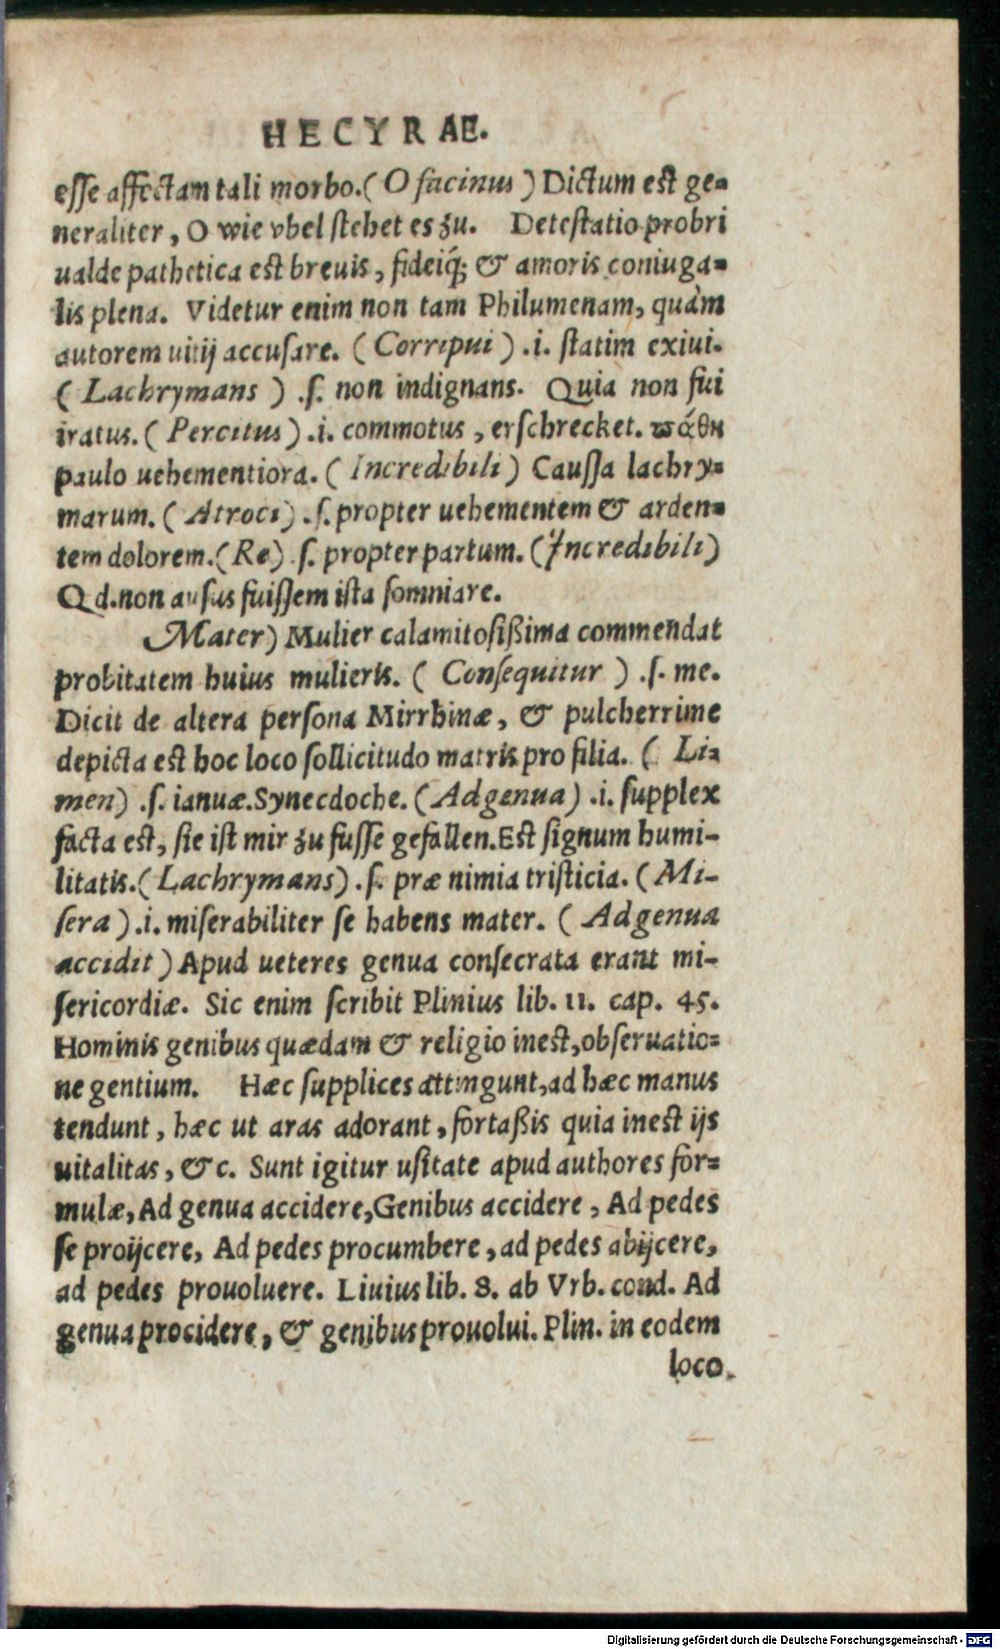 HECYRAE.
eſſe affectam tali morbo.( O facinus ) Dictum est ge-
neraliter, O wie vbel ſtehet es zu. Deteſtatio probri
ualde pathetica est breuis, fideiq́; & amoris coniuga-
lis plena. Videtur enim non tam Philumenam, quàm
autorem uitij accuſare. ( Corripui ) .i. ſtatim exiui.
( Lachrymans ) .ſ. non indignans. Quia non fui
iratus. ( Percitus ) .i. commotus, erſchrecket. πάθη
paulo uehementiora. ( Incredibili ) Cauſſa lachry-
marum. ( Atroci ) .ſ. propter uehementem & arden-
tem dolorem.( Re) .ſ. propter partum. (Incredibili)
Qd.non auſus fuiſſem iſta ſomniare.
Mater) Mulier calamitoſißima commendat
probitatem huius mulieris. ( Conſequitur ) .ſ. me.
Dicit de altera perſona Mirrhinæ, & pulcherrime
depicta est hoc loco ſollicitudo matris pro filia. ( Li-
men) .ſ. ianuæ.Synecdoche. ( Ad genua ) .i. ſupplex
facta est, ſie iſt mir zu fuſſe gefallen.Est ſignum humi-
litatis.( Lachrymans) .ſ. præ nimia triſticia. ( Mi-
ſera ) .i. miſerabiliter ſe habens mater. ( Ad genua
accidit ) Apud ueteres genua conſecrata erant mi-
ſericordiæ. Sic enim ſcribit Plinius lib. 11. cap. 45.
Hominis genibus quædam & religio inest,obſeruatio-
ne gentium. Hæc ſupplices attingunt,ad hæc manus
tendunt, hæc ut aras adorant, fortaßis quia inest ijs
uitalitas, &c. Sunt igitur uſitate apud authores for-
mulæ, Ad genua accidere,Genibus accidere, Ad pedes
ſe proijcere, Ad pedes procumbere, ad pedes abijcere,
ad pedes prouoluere. Liuius lib. 8. ab Vrb. cond. Ad
genua procidere, & genibus prouolui. Plin. in eodem
loco.
Digitalisierung gefördert durch die Deutsche Forschungsgemeinschaft - DFG